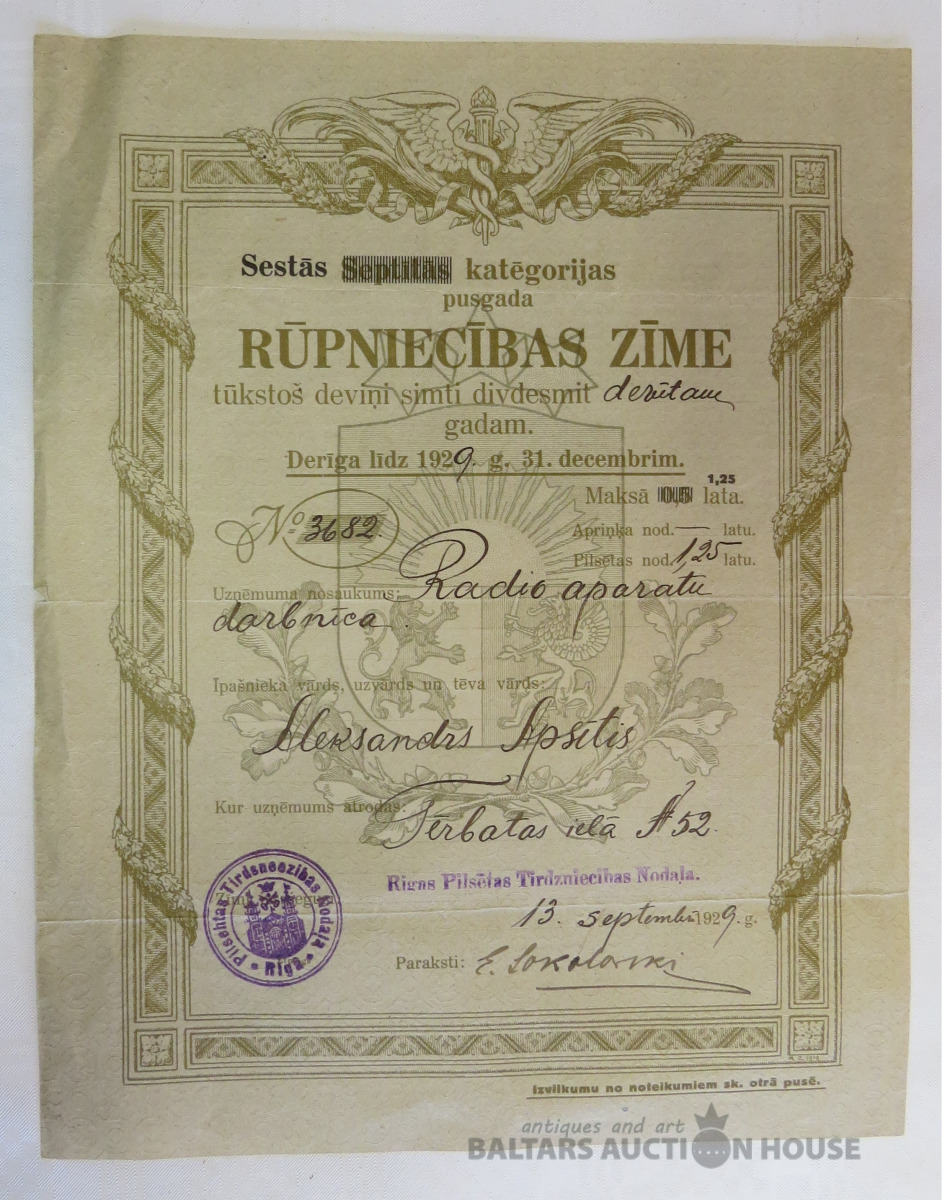 Sestās Septītās katēgorijas
pusgada
RŪPNIECĪBAS ZĪME
tūkstoš deviņi simti divdesmit devītam
gadam.
Derīga līdz 1929. g. 31. decembrim.
1,25
Maksā lata.
№ 3682.
Apriņķa nod. — latu.
Pilsētas nod. 1,25 latu.
Uzņēmuma nosaukums: Radio aparatu
darbnīca.
Īpašnieka vārds, uzvārds un tēva vārds:
Aleksandrs Apsītis
Kur uzņēmums atrodas: Tērbatas ielā № 52.
Rīgas Pilsētas Tirdzniecības Nodaļa.
Pilsehtas Tirdsneezibas Nodaļa
Rīgā
13. septembrī 1929. g.
Paraksti: E. Sokolovski
Izvilkumu no noteikumiem sk. otrā pusē.
antiques and art
BALTARS AUCTION HOUSE